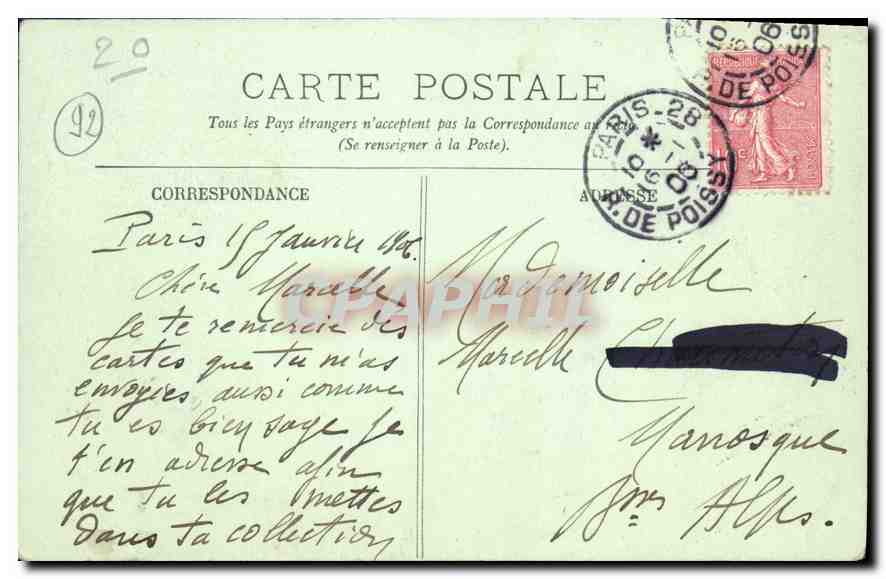 20
92
CARTE POSTALE
Tous les Pays étrangers n'acceptent pas la Correspondance au recto
(Se renseigner à la Poste).
PARIS - 28
R. DE POISSY
DE POISS
CORRESPONDANCE
ADRESSE
Paris 15 Janvier 1906.
Chère Marcelle
Je te remercie des
cartes que tu m'as
envoyées aussi comme
tu es bien sage je
t'en adresse afin
que tu les mettes
dans ta collection
Mademoiselle
Marcelle
Manosque
Bses Alpes.
CPAPHIL